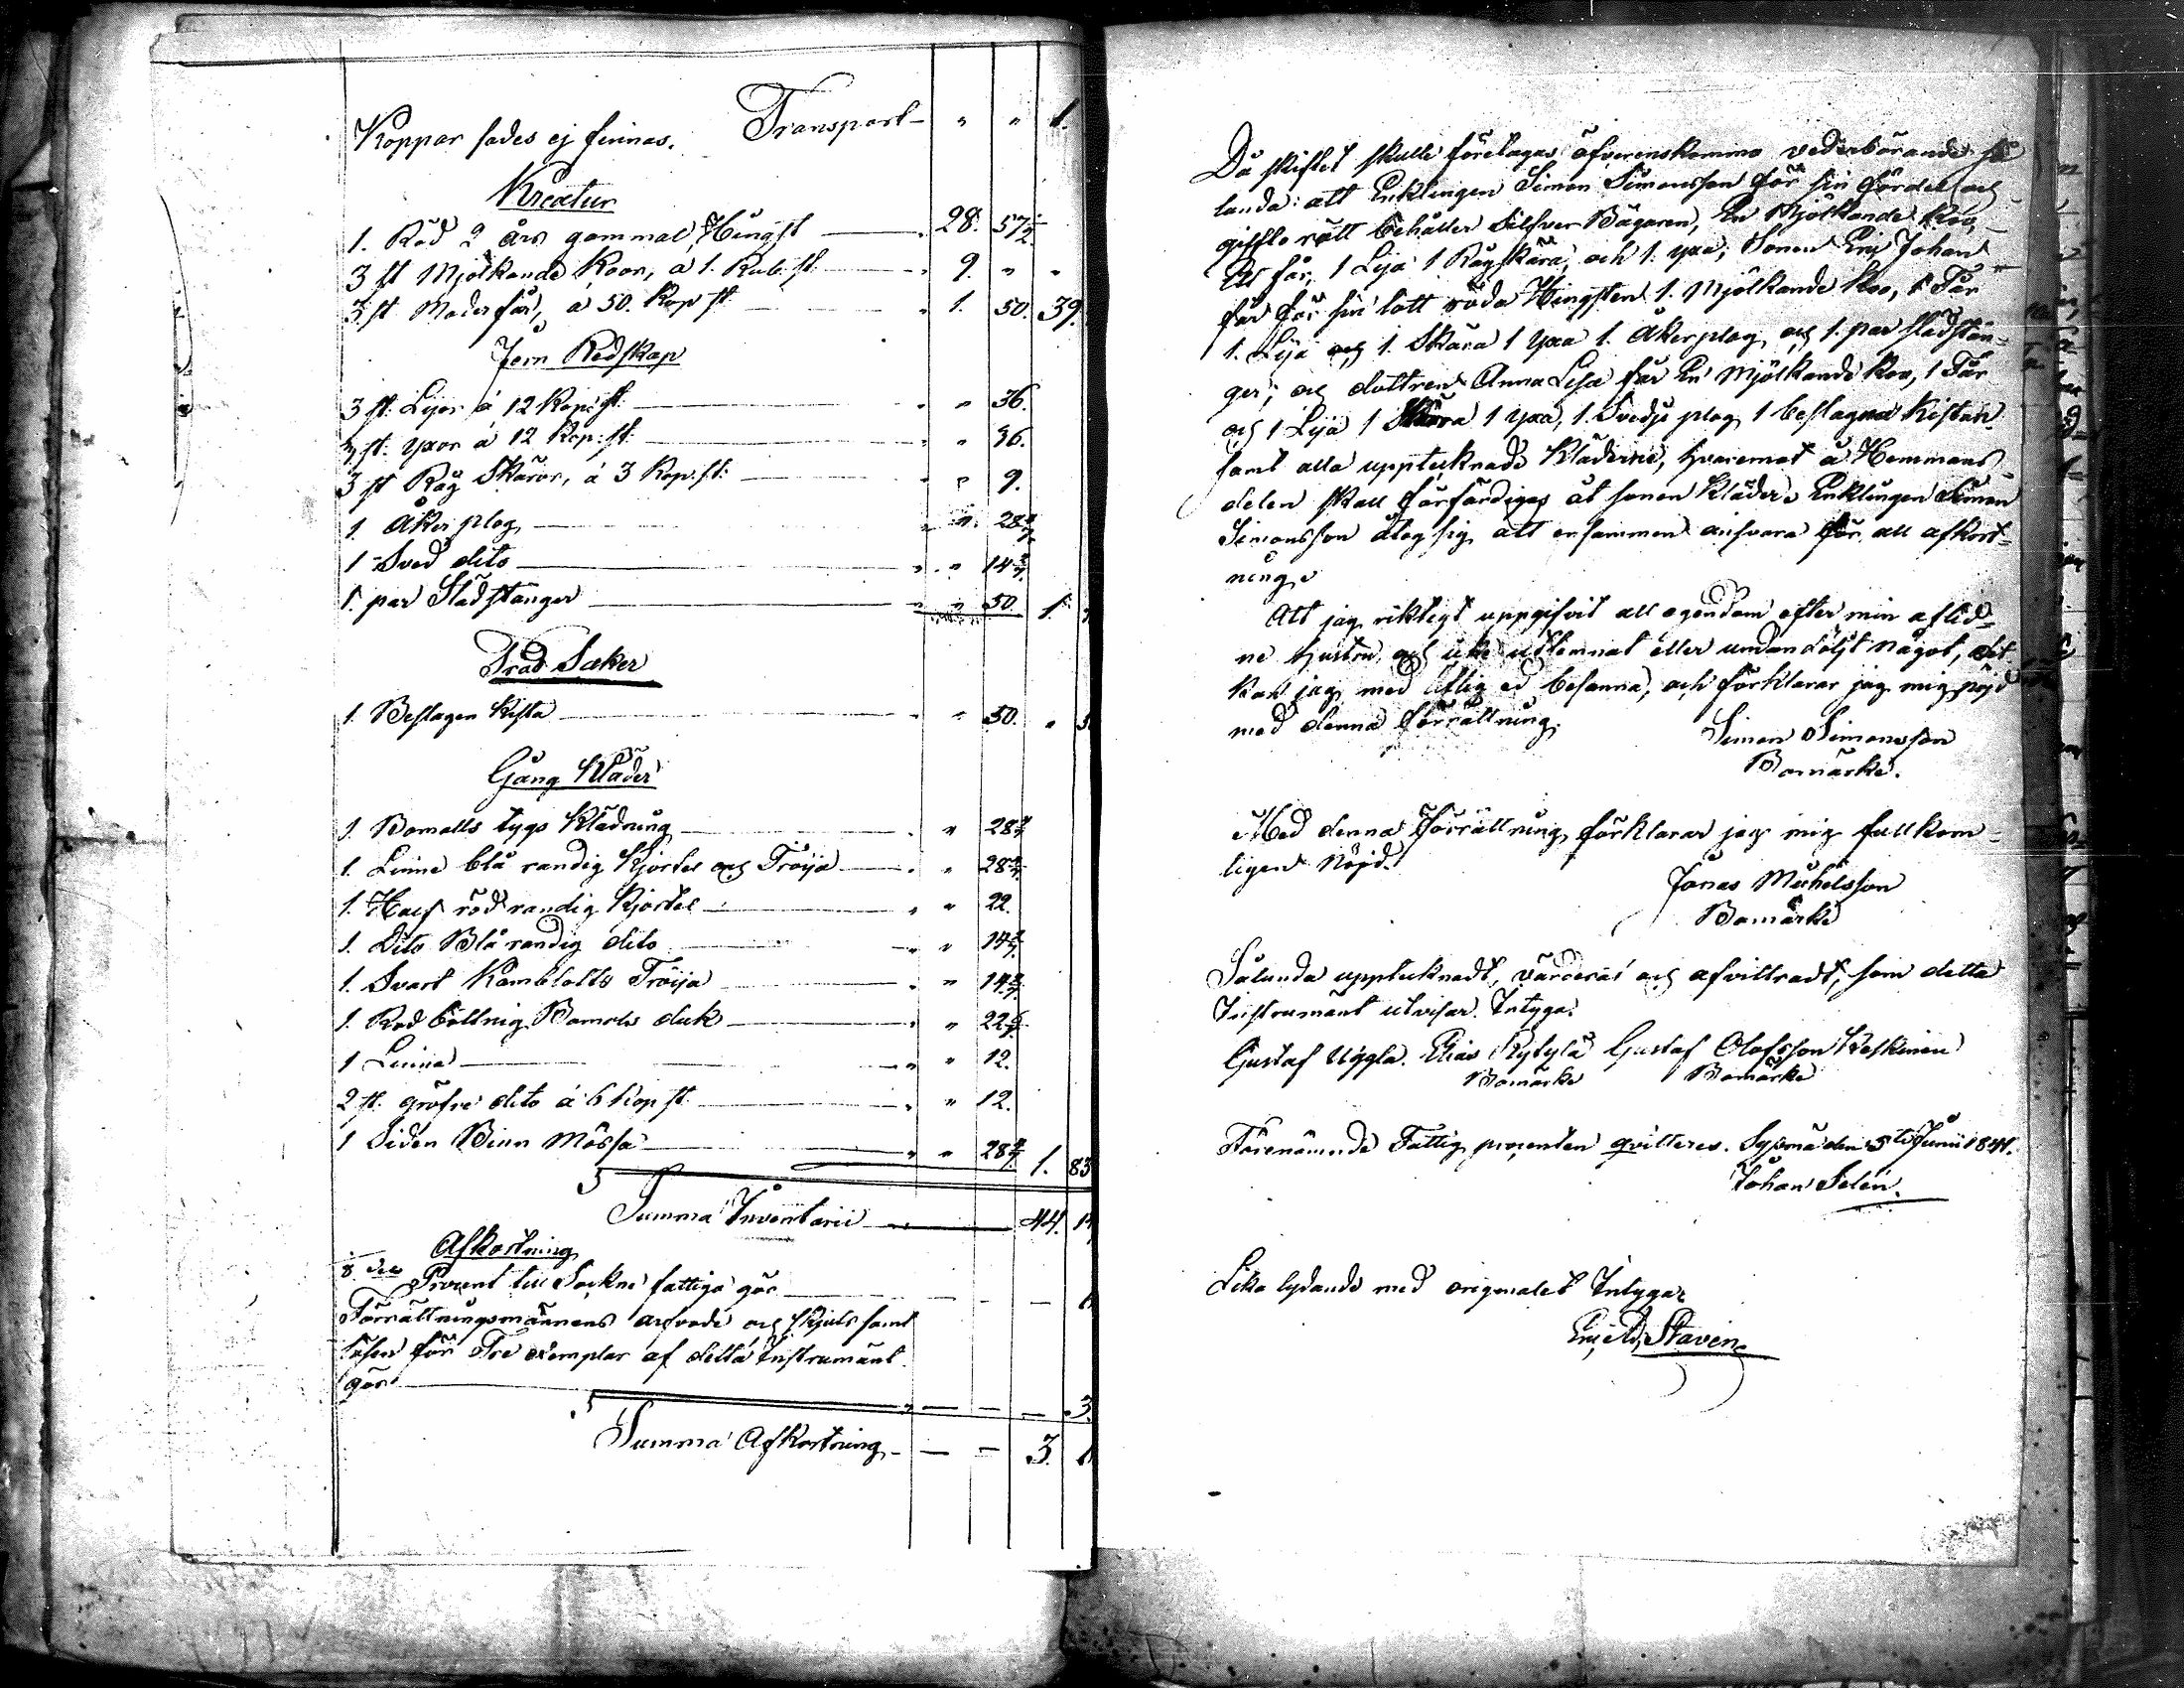 Transport - " " 1.
Koppar sades ej finnas.
Kreatur
1. Röd 2 års gammal Hingst 28. 57 1/2
3 st Mjölkande Koor, a 1. Rub. st. 9. " "
3. st Moderfår, a 50. Kop st. 1. 50. 39.
Jern Redskap
3 st. Lijor á 12 Kop: st. " 36.
3 st. yxor a 12 Kop: st. " 36.
3 st Råg Skäror, á 3 Kop. st: " 9.
1. Åker plog " 28 4/7
1 Sved dito " 14 2/7
1. par Slädstänger " 50. 1.
Träd Saker
1. Beslagen Kista " 50. "
Gång Kläder
1. Bomalls tygs Klädning " 28 4/7
1. Linne blå randig Kjortel och Tröija " 28 4/7
1. Half röd randig Kjortel " 22.
1. Dito Blå randig dito " 14 2/7
1. Svart Kamblotts Tröija " 14 2/7
1. Röd bottnig Bomols duk " 22 6/7
1 Linne " 12.
2 st. gröfre dito á 6 Kop st. " 12.
1 Siden Binn Mössa " 28 4/7 1. 83
Summa Inventarii 44.
Afkortning
8 dels Procent till Sockne fattiga gör
Förrättningsmännens arfvode och skjuts samt
lösen för Tre exemplar af detta Instrumänt
gör 3.
Summa Afkortning - - - 3.
Då skiftet skulle företagas öfverenskommo vederbörande så
lunda: att Enklingen Simon Simonsson för sin fördel och
giftorätt behåller Silfver Bägaren, En Mjölkande Koo,
Et får, 1 Lija 1 Rågskära, och 1. yxa; Sonen Eric Johan
får för sin lott röda Hingsten 1. Mjölkande Koo, 1 Får
1. Lija och 1. Skära 1 yxa 1. Åkerplog och 1. par slädstän-
ger; och dottren Anna Lisa får En Mjölkande Koo, 1 Får
och 1 Lija 1 Skära 1 yxa, 1. Svedje plog 1 beslagna Kistan
samt alla upptecknade Kläderne, hvaremot å Hemmans
delen skall förfärdigas åt sonen Kläder. Enklingen Simon
Simonsson åtog sig att ensammen ansvara för all afkort-
ning.
Att jag riktigt uppgifvit all egendom efter min aflid-
ne hustru, och icke utlemnat eller undandöljt något, det
kan jag med liflig ed besanna, och förklarar jag mig nöjd
med denna förrättning.
Simon Simonsson
Bomärke.
Med denna Förrättning förklarar jag mig fullkom-
ligen Nöjd.
Jonas Michelsson
Bomärke
Sålunda upptecknadt, värderat och afvittradt, som detta
Instrumänt utvisar. Intyga:
Gustaf Uggla. Elias Kylylä Gustaf Olofsson Keskinen
Bomärke Bomärke
Förenämnde Fattig procenten qvitteres. Sysmä den 5te Junii 1841.
Johan Selén.
Lika lydande med originalet Intygar